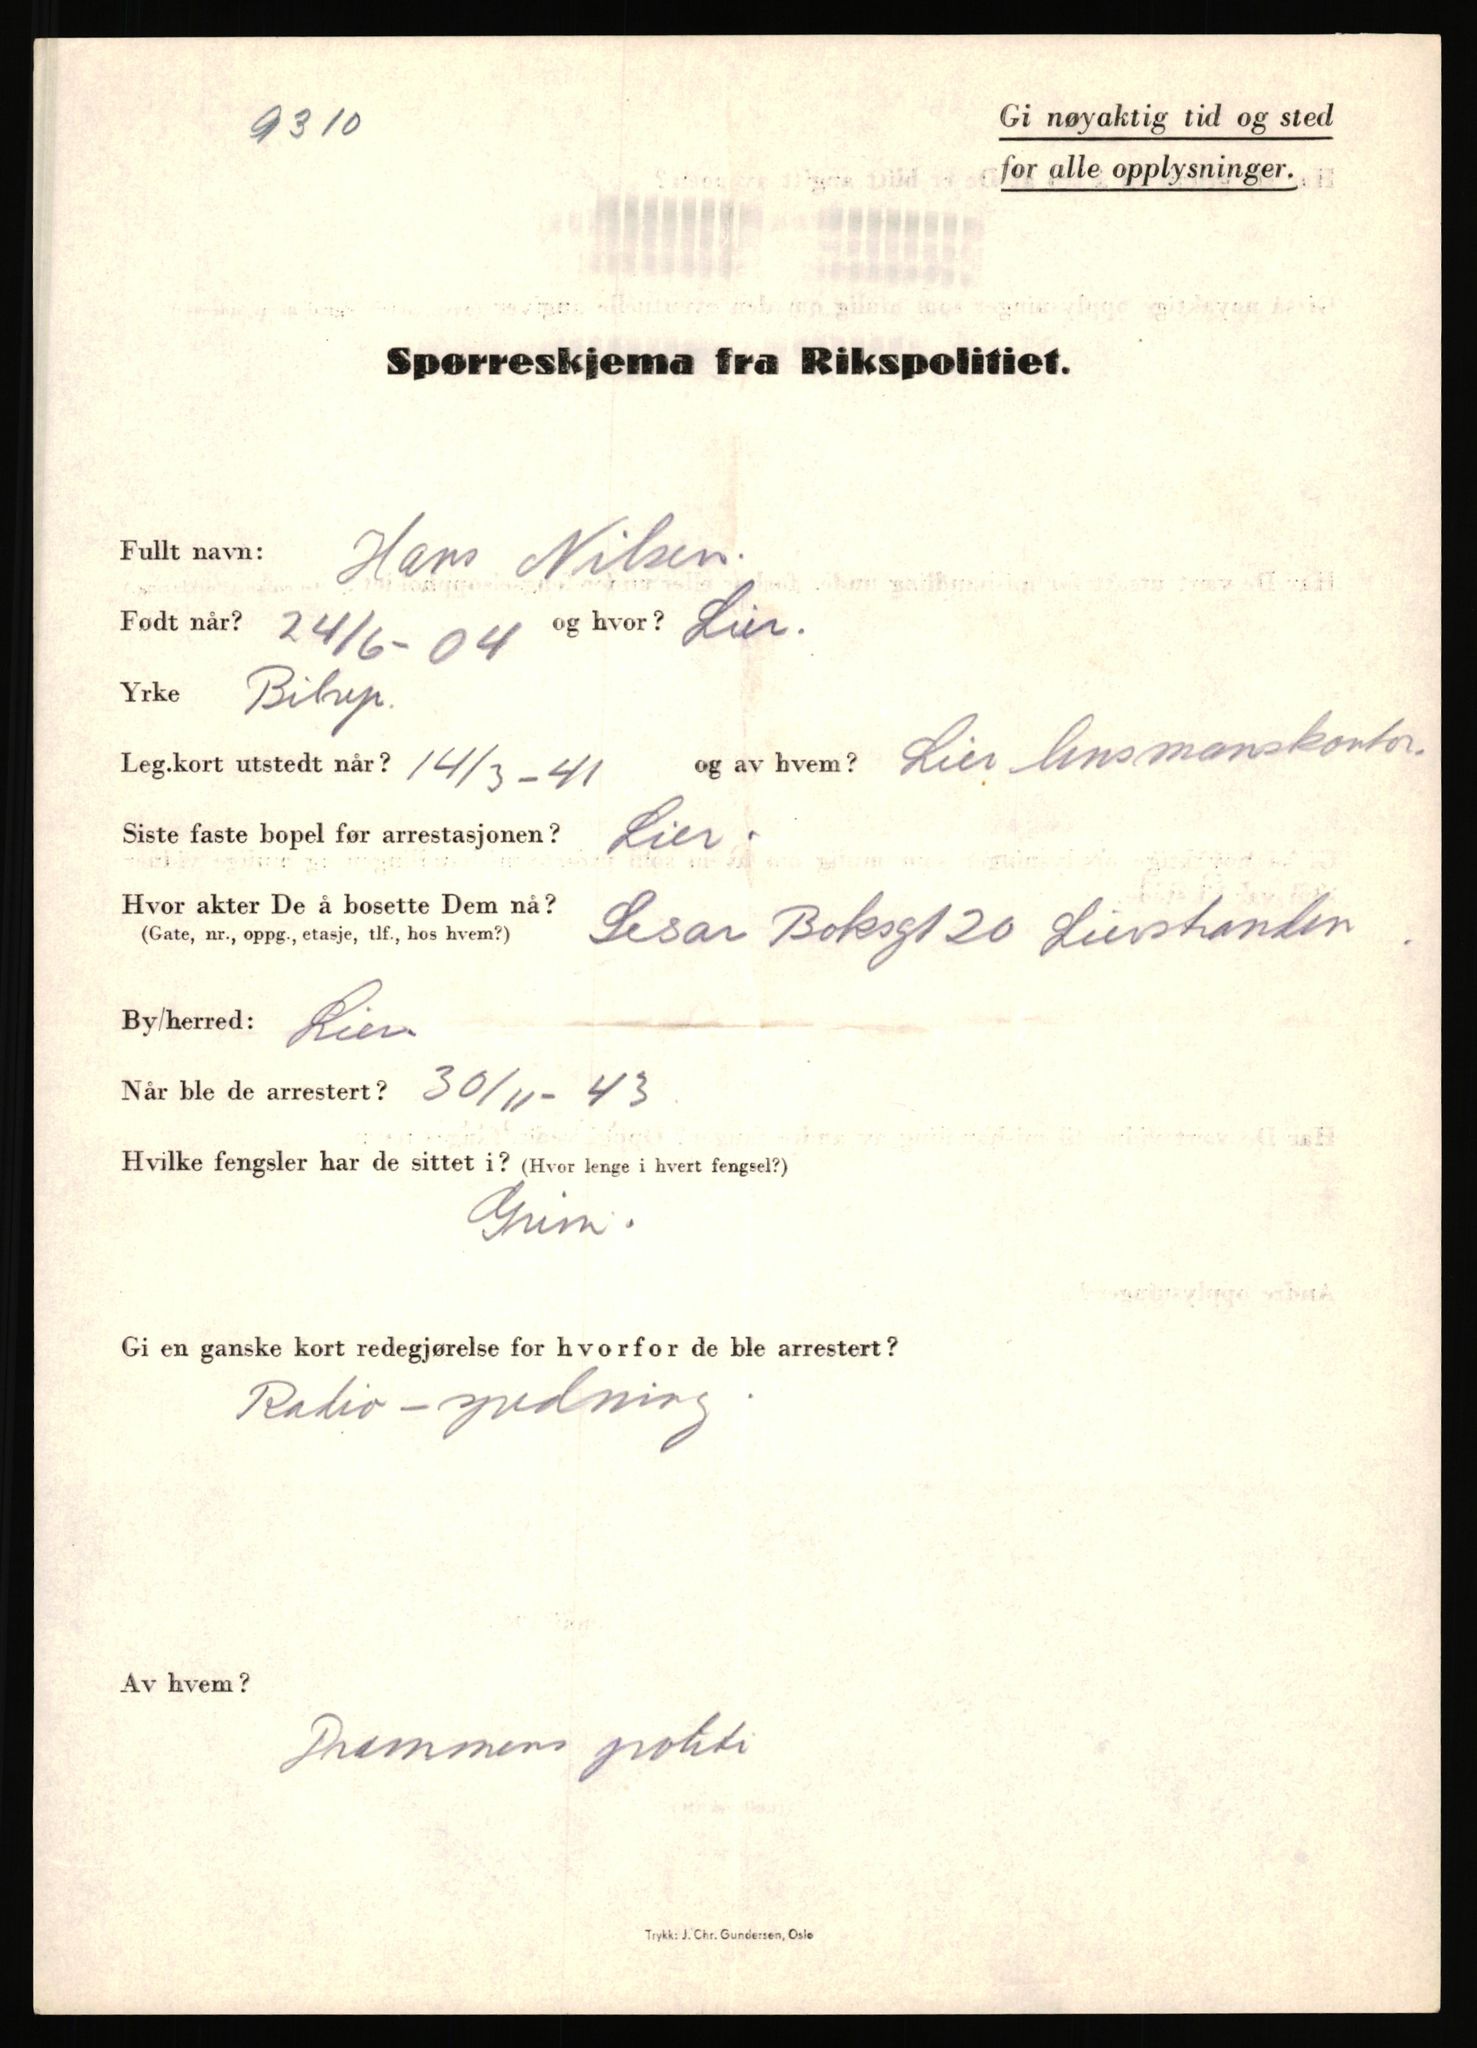 9310
Gi nøyaktig tid og sted
for alle opplysninger.
Spørreskjema fra Rikspolitiet.
Fullt navn: Hans Nilsen.
Født når? 24/6-04 og hvor? Lier.
Yrke Bilrep.
Leg.kort utstedt når? 14/3-41 og av hvem? Lier lensmanskontor.
Siste faste bopel før arrestasjonen? Lier.
Hvor akter De å bosette Dem nå?
(Gate, nr., oppg., etasje, tlf., hos hvem?) Sesar Boksgt 20 Lierstranden.
By/herred: Lier
Når ble de arrestert? 30/11-43
Hvilke fengsler har de sittet i? (Hvor lenge i hvert fengsel?)
Grini.
Gi en ganske kort redegjørelse for hvorfor de ble arrestert?
Radio-spredning.
Av hvem?
Drammens politi
Trykk: J. Chr. Gundersen, Oslo